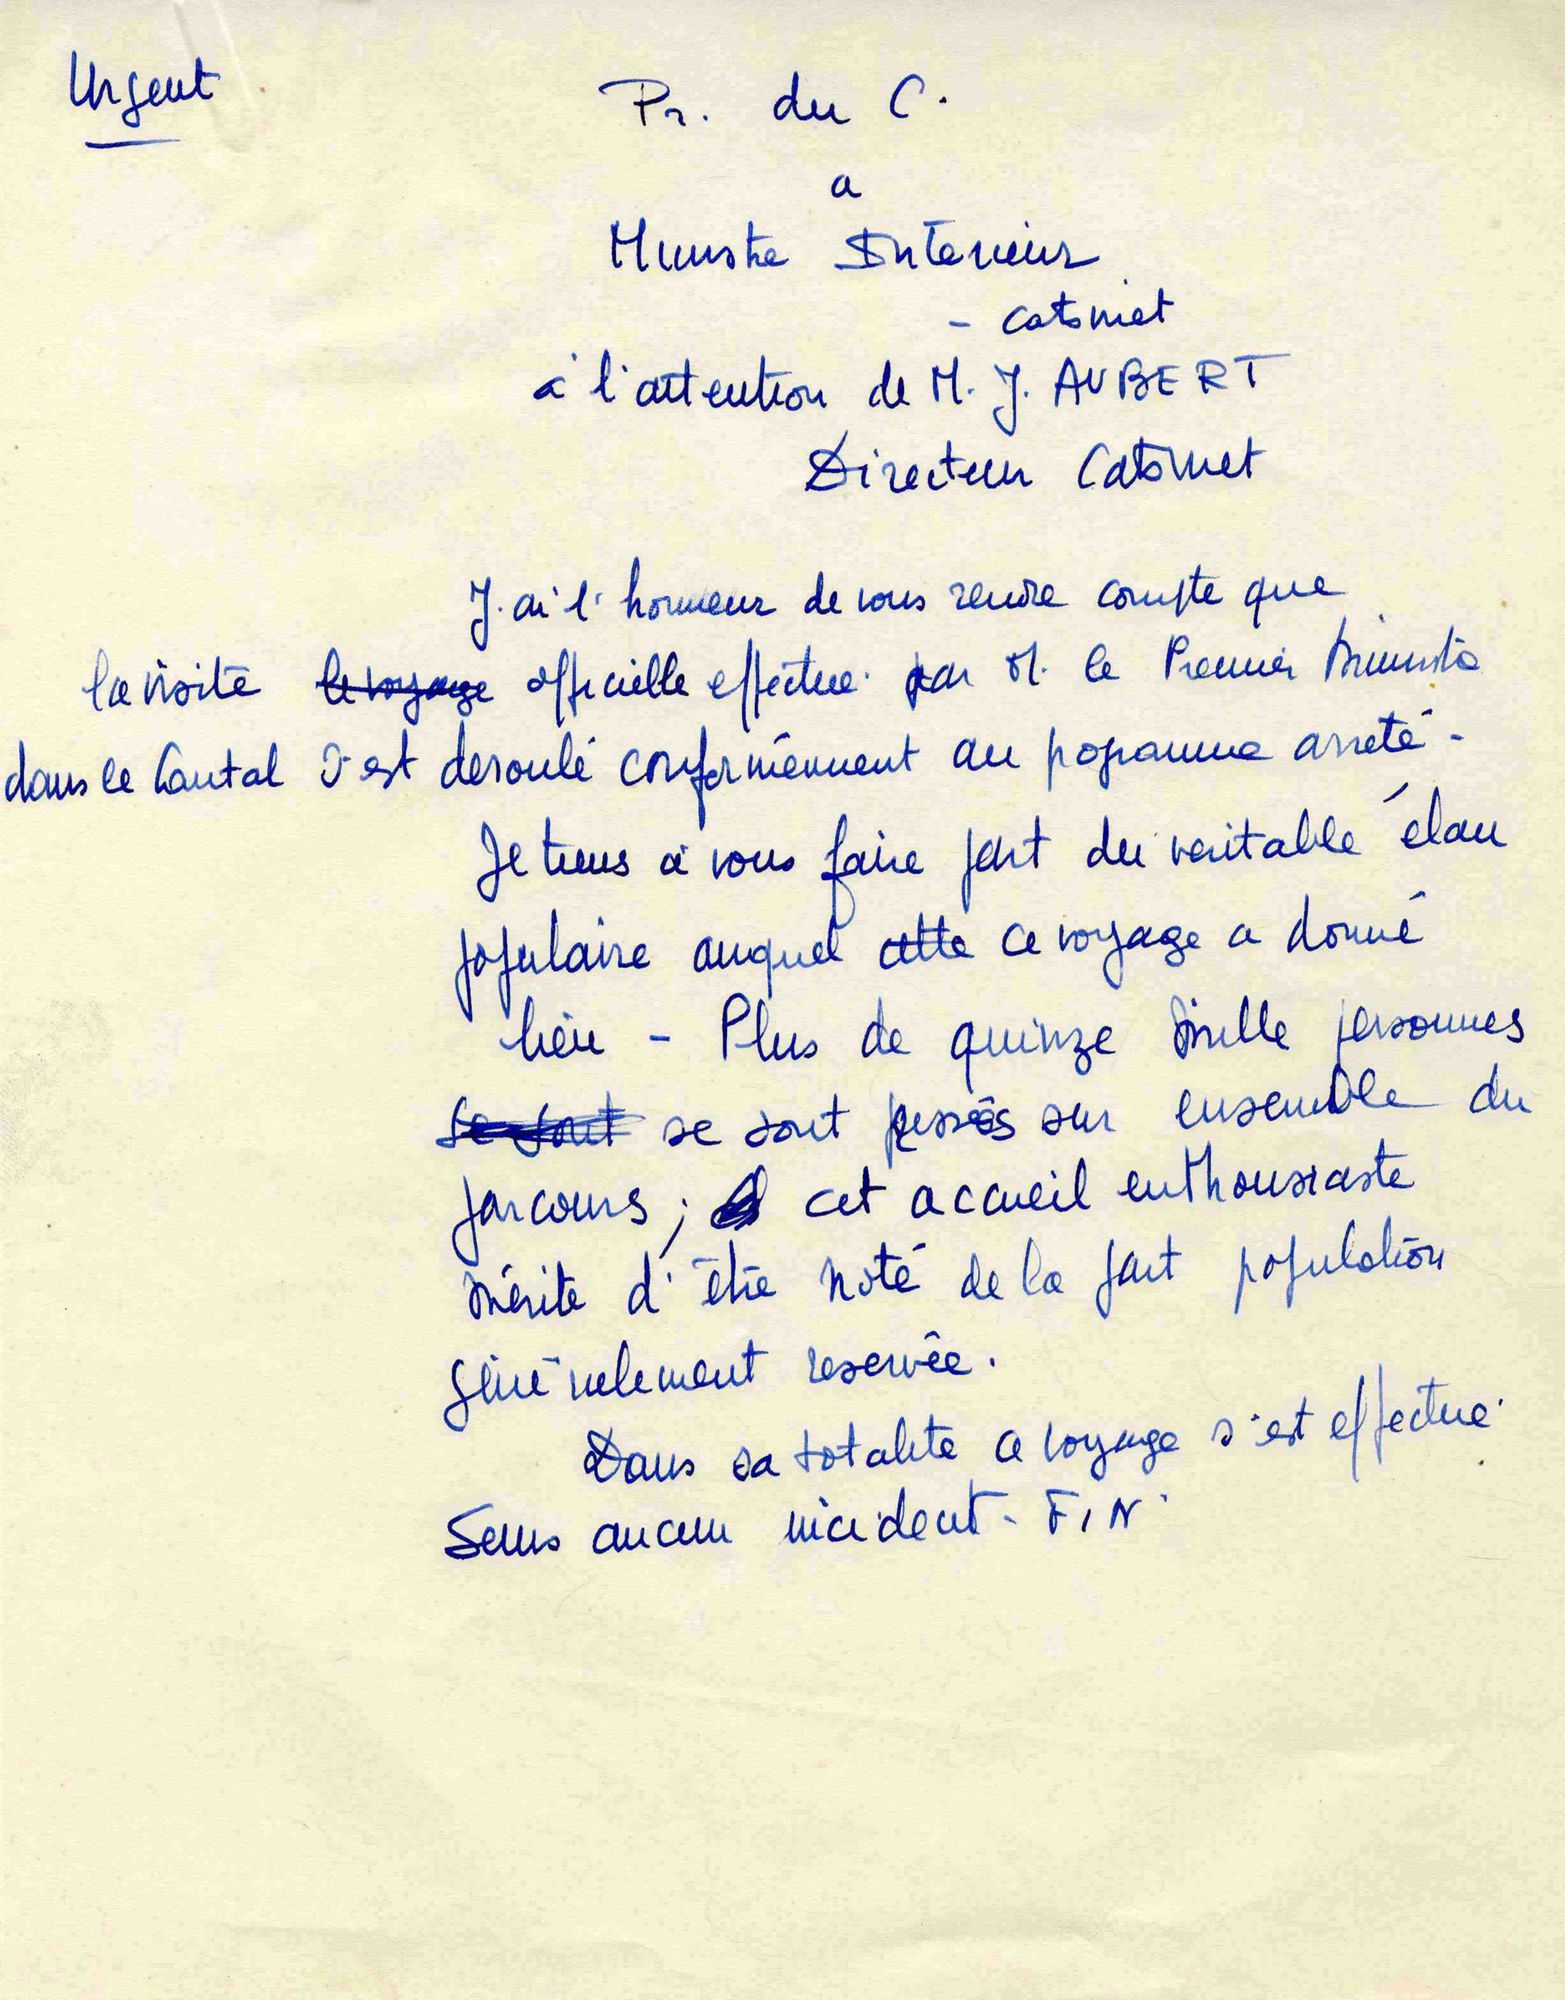 Urgent
Pr. du C.
a
Ministre Intérieur
- Cabinet
à l'attention de M. J. AUBERT
Directeur Cabinet
J'ai l'honneur de vous rendre compte que
la visite le voyage officielle effectué par M. le Premier Ministre
dans le Cantal s'est deroulé conformément au programme arreté -
Je tiens à vous faire part du veritable élan
populaire auquel cette ce voyage a donné
lieu - Plus de quinze mille personnes
se sont se sont pressés sur ensemble du
parcours ; cet accueil enthousiaste
mérite d'être noté de la part population
généralement reservée.
Dans sa totalite ce voyage s'est effectué
Sans aucun incident - FIN